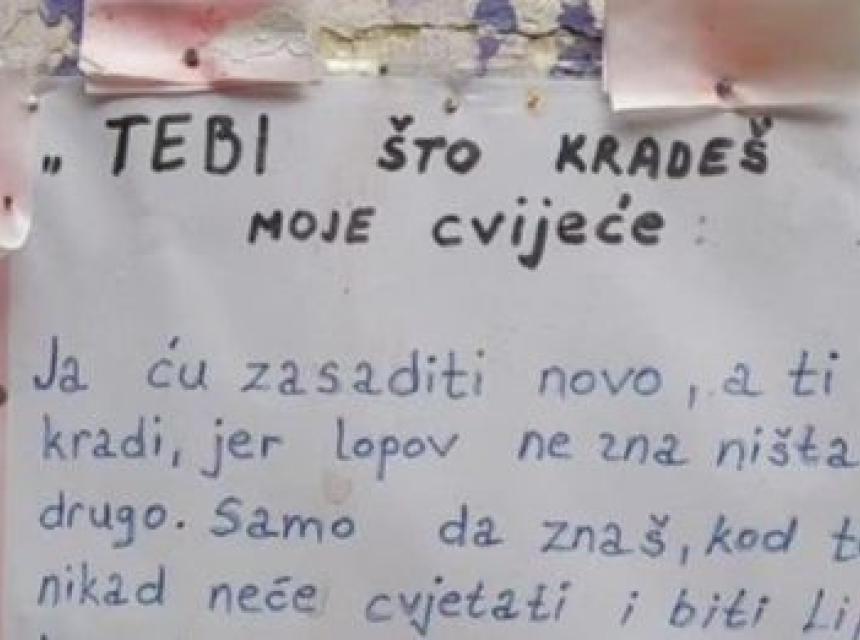 „ TEBI ŠTO KRADEŠ
MOJE cvijeće :
Ja ću zasaditi novo, a ti
kradi, jer lopov ne zna ništa
drugo. Samo da znaš, kod
nikad neće cvjetati i biti